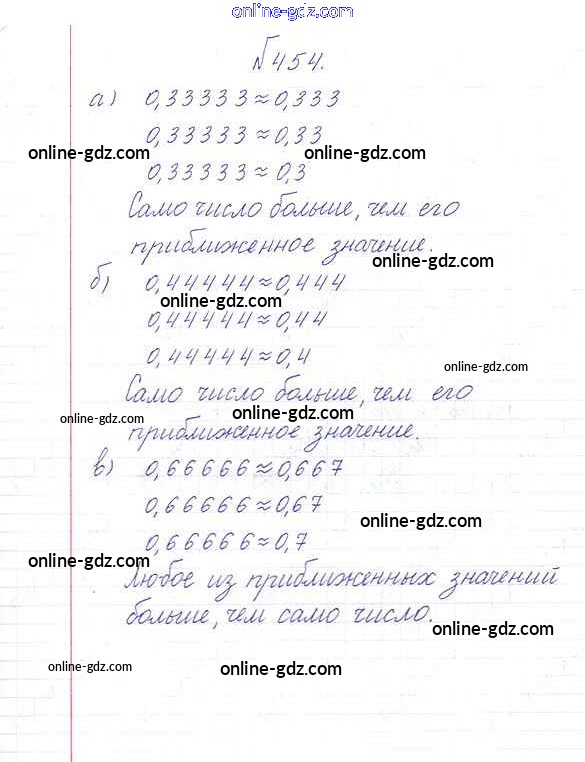 online-gdz.com
№454.
а) 0,33333≈0,333
0,33333≈0,33
online-gdz.com online-gdz.com
0,33333≈0,3
Само число больше, чем его
приближенное значение.
online-gdz.com
б) 0,44444≈0,444
online-gdz.com
0,44444≈0,44
0,44444≈0,4
online-gdz.com
Само число больше, чем его
online-gdz.com online-gdz.com
приближенное значение.
в) 0,66666≈0,667
0,66666≈0,67
online-gdz.com
0,66666≈0,7
online-gdz.com
Любое из приближенных значений
больше, чем само число.
online-gdz.com
online-gdz.com online-gdz.com